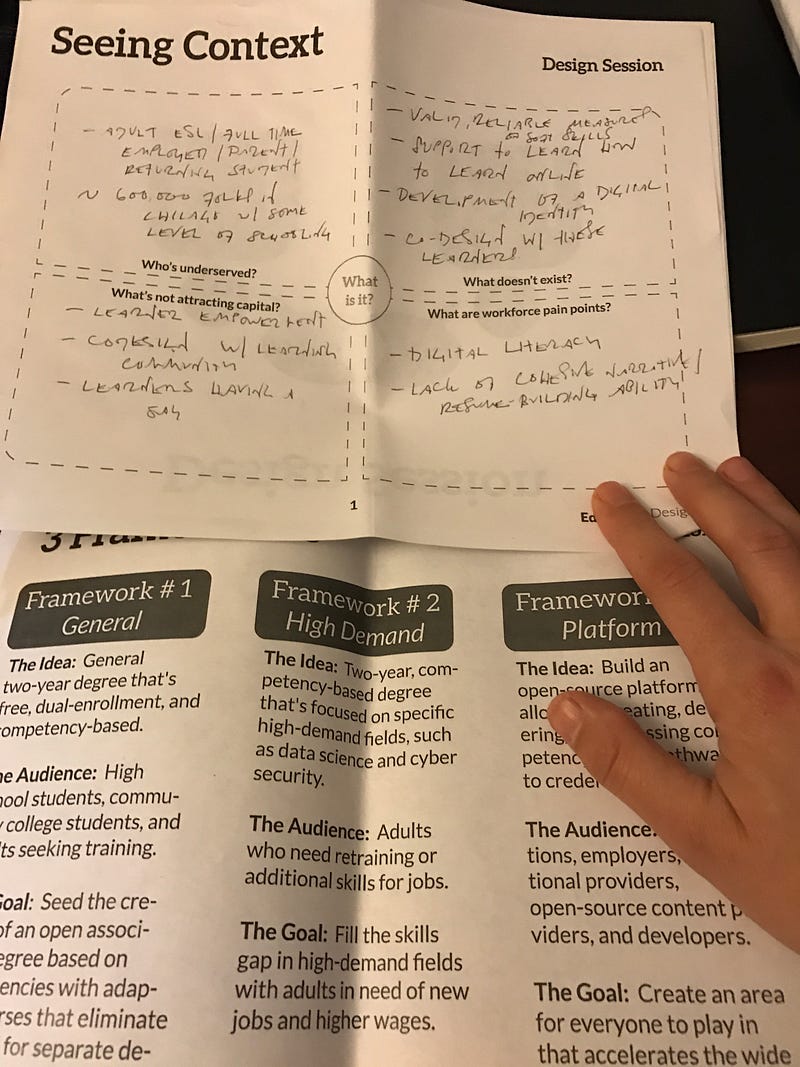 Seeing Context
Design Session
- ADULT ESL / FULL TIME
EMPLOYED / PARENT /
RETURNING STUDENT
~ 600,000 FOLKS IN
CHICAGO W/ SOME
LEVEL OF SCHOOLING
Who's underserved?
- VALID, RELIABLE MEASURES
OF SOFT SKILLS
- SUPPORT to LEARN HOW
to LEARN ONLINE
- DEVELOPMENT OF A DIGITAL
IDENTITY
- CO-DESIGN W/ THESE
LEARNERS
What doesn't exist?
What
is it?
What's not attracting capital?
- LEARNER EMPOWERMENT
- CODESIGN W/ LEARNING
COMMUNITY
- LEARNERS HAVING A
SAY
What are workforce pain points?
- DIGITAL LITERACY
- LACK OF COHESIVE NARRATIVE /
RESUME-BUILDING ABILITY
1
Ed
Desig
3
Framework # 1
General
The Idea: General
two-year degree that's
free, dual-enrollment, and
ompetency-based.
e Audience: High
ool students, commu-
y college students, and
lts seeking training.
Goal: Seed the cre-
of an open associ-
egree based on
encies with adap-
rses that eliminate
for separate de-
Framework # 2
High Demand
The Idea: Two-year, com-
petency-based degree
that's focused on specific
high-demand fields, such
as data science and cyber
security.
The Audience: Adults
who need retraining or
additional skills for jobs.
The Goal: Fill the skills
gap in high-demand fields
with adults in need of new
jobs and higher wages.
Framewor
Platform
The Idea: Build an
open-source platform
allo eating, de
ering ssing co
petenc thwa
to crede
The Audience:
tions, employers,
tional providers,
open-source content p
viders, and developers.
The Goal: Create an area
for everyone to play in
that accelerates the wide